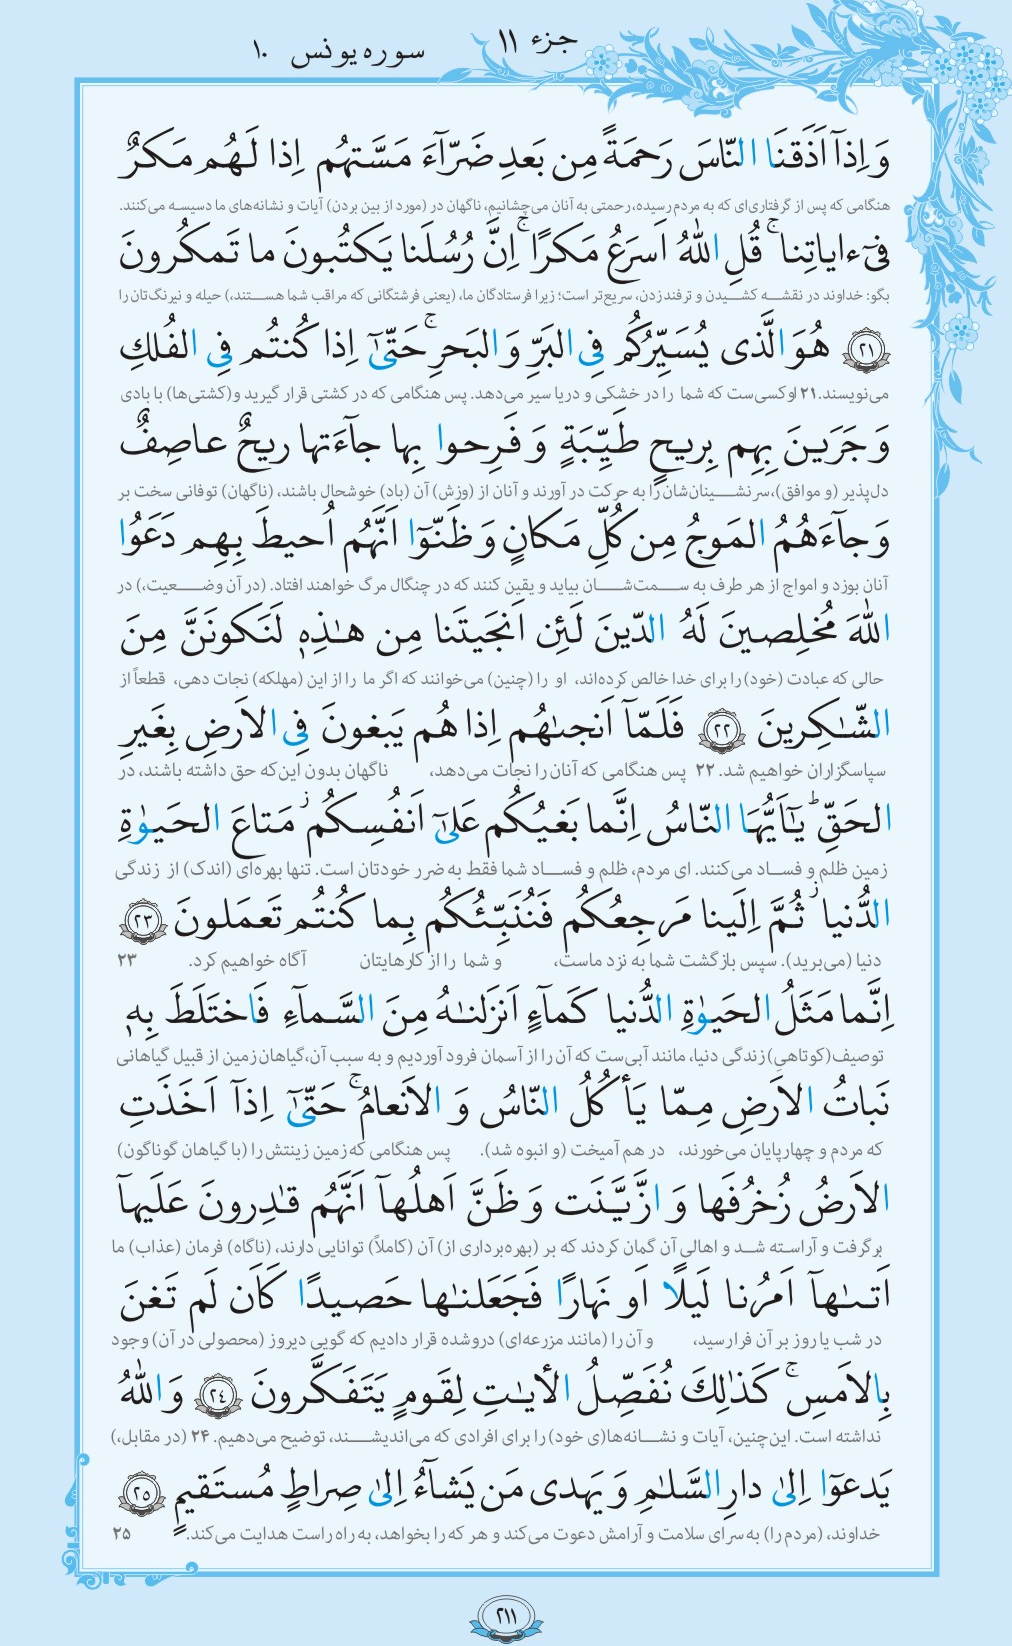 جزء ۱۱
سوره یونس ۱۰
وَ اِذآ اَذَقنَا النّاسَ رَحمَةً مِن بَعدِ ضَرّآءَ مَسَّتهُم اِذا لَهُم مَکرٌ
هنگامی که پس از گرفتاری‌ای که به مردم رسیده، رحمتی به آنان می‌چشانیم، ناگهان در (مورد از بین بردن) آیات و نشانه‌های ما دسیسه می‌کنند.
فیٓ ءایاتِنا ۚ قُلِ اللّٰهُ اَسرَعُ مَکرًا ۚ اِنَّ رُسُلَنا یَکتُبونَ ما تَمکُرونَ
بگو: خداوند در نقشه کشیدن و ترفند زدن، سریع‌تر است؛ زیرا فرستادگان ما، (یعنی فرشتگانی که مراقب شما هستند،) حیله و نیرنگ‌تان را
﴿۲۱﴾ هُوَ الَّذی یُسَیِّرُکُم فِی البَرِّ وَ البَحرِ ۚ حَتّیٰٓ اِذا کُنتُم فِی الفُلکِ
می‌نویسند. ۲۱ او کسی‌ست که شما را در خشکی و دریا سیر می‌دهد. پس هنگامی که در کشتی قرار گیرید و (کشتی‌ها) با بادی
وَ جَرَینَ بِهِم بِریحٍ طَیِّبَةٍ وَ فَرِحوا بِها جآءَتها ریحٌ عاصِفٌ
دل‌پذیر (و موافق)، سرنشینان‌شان را به حرکت در آورند و آنان از (وزش) آن (باد) خوشحال باشند، (ناگهان) توفانی سخت بر
وَ جآءَهُمُ المَوجُ مِن کُلِّ مَکانٍ وَ ظَنّوٓا اَنَّهُم اُحیطَ بِهِم دَعَوُا
آنان بوزد و امواج از هر طرف به سمت‌شان بیاید و یقین کنند که در چنگال مرگ خواهند افتاد. (در آن وضعیت،) در
اللّٰهَ مُخلِصینَ لَهُ الدّینَ لَئِن اَنجَیتَنا مِن هٰذِهٖ لَنَکونَنَّ مِنَ
حالی که عبادت (خود) را برای خدا خالص کرده‌اند، او را (چنین) می‌خوانند که اگر ما را از این (مهلکه) نجات دهی، قطعاً از
الشّٰکِرینَ ﴿۲۲﴾ فَلَمّآ اَنجٰهُم اِذا هُم یَبغونَ فِی الاَرضِ بِغَیرِ
سپاسگزاران خواهیم شد. ۲۲ پس هنگامی که آنان را نجات می‌دهد، ناگهان بدون این‌که حق داشته باشند، در
الحَقِّ ۗ یٰٓاَیُّهَا النّاسُ اِنَّما بَغیُکُم عَلیٰٓ اَنفُسِکُم ۖ مَتاعَ الحَیوٰةِ
زمین ظلم و فساد می‌کنند. ای مردم، ظلم و فساد شما فقط به ضرر خودتان است. تنها بهره‌ای (اندک) از زندگی
الدُّنیا ۖ ثُمَّ اِلَینا مَرجِعُکُم فَنُنَبِّئُکُم بِما کُنتُم تَعمَلونَ ﴿۲۳﴾
دنیا (می‌برید). سپس بازگشت شما به نزد ماست، و شما را از کارهایتان آگاه خواهیم کرد. ۲۳
اِنَّما مَثَلُ الحَیوٰةِ الدُّنیا کَمآءٍ اَنزَلنٰهُ مِنَ السَّمآءِ فَاختَلَطَ بِهٖ
توصیف (کوتاهی) زندگی دنیا، مانند آبی‌ست که آن را از آسمان فرود آوردیم و به سبب آن، گیاهان زمین از قبیل گیاهانی
نَباتُ الاَرضِ مِمّا یَأکُلُ النّاسُ وَ الاَنعامُ ۚ حَتّیٰٓ اِذآ اَخَذَتِ
که مردم و چهارپایان می‌خورند، در هم آمیخت (و انبوه شد). پس هنگامی که زمین زینتش را (با گیاهان گوناگون)
الاَرضُ زُخرُفَها وَ ازَّیَّنَت وَ ظَنَّ اَهلُهآ اَنَّهُم قٰدِرونَ عَلَیهآ
برگرفت و آراسته شد و اهالی آن گمان کردند که بر (بهره‌برداری از) آن (کاملاً) توانایی دارند، (ناگاه) فرمان (عذاب) ما
اَتٰهآ اَمرُنا لَیلًا اَو نَهارًا فَجَعَلنٰها حَصیدًا کَاَن لَم تَغنَ
در شب یا روز بر آن فرا رسید، و آن را (مانند مزرعه‌ای) دروشده قرار دادیم که گویی دیروز (محصولی در آن) وجود
بِالاَمسِ ۚ کَذٰلِکَ نُفَصِّلُ الأیٰتِ لِقَومٍ یَتَفَکَّرونَ ﴿۲۴﴾ وَ اللّٰهُ
نداشته است. این‌چنین، آیات و نشانه‌ها(ی خود) را برای افرادی که می‌اندیشند، توضیح می‌دهیم. ۲۴ (در مقابل،)
یَدعوٓا اِلیٰ دارِ السَّلٰمِ وَ یَهدی مَن یَشآءُ اِلیٰ صِراطٍ مُستَقیمٍ ﴿۲۵﴾
خداوند، (مردم را) به سرای سلامت و آرامش دعوت می‌کند و هر که را بخواهد، به راه راست هدایت می‌کند. ۲۵
۲۱۱